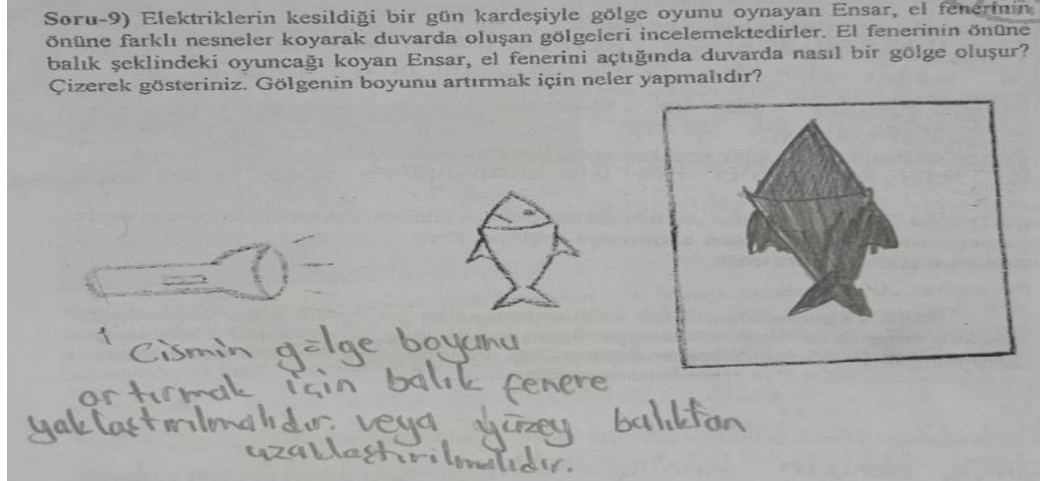 Soru-9) Elektriklerin kesildiği bir gün kardeşiyle gölge oyunu oynayan Ensar, el fenerinin
önüne farklı nesneler koyarak duvarda oluşan gölgeleri incelemektedirler. El fenerinin önüne
balık şeklindeki oyuncağı koyan Ensar, el fenerini açtığında duvarda nasıl bir gölge oluşur?
Çizerek gösteriniz. Gölgenin boyunu artırmak için neler yapmalıdır?
Cismin gölge boyunu
artırmak için balık fenere
yaklaştırılmalıdır. veya yüzey balıktan
uzaklaştırılmalıdır.